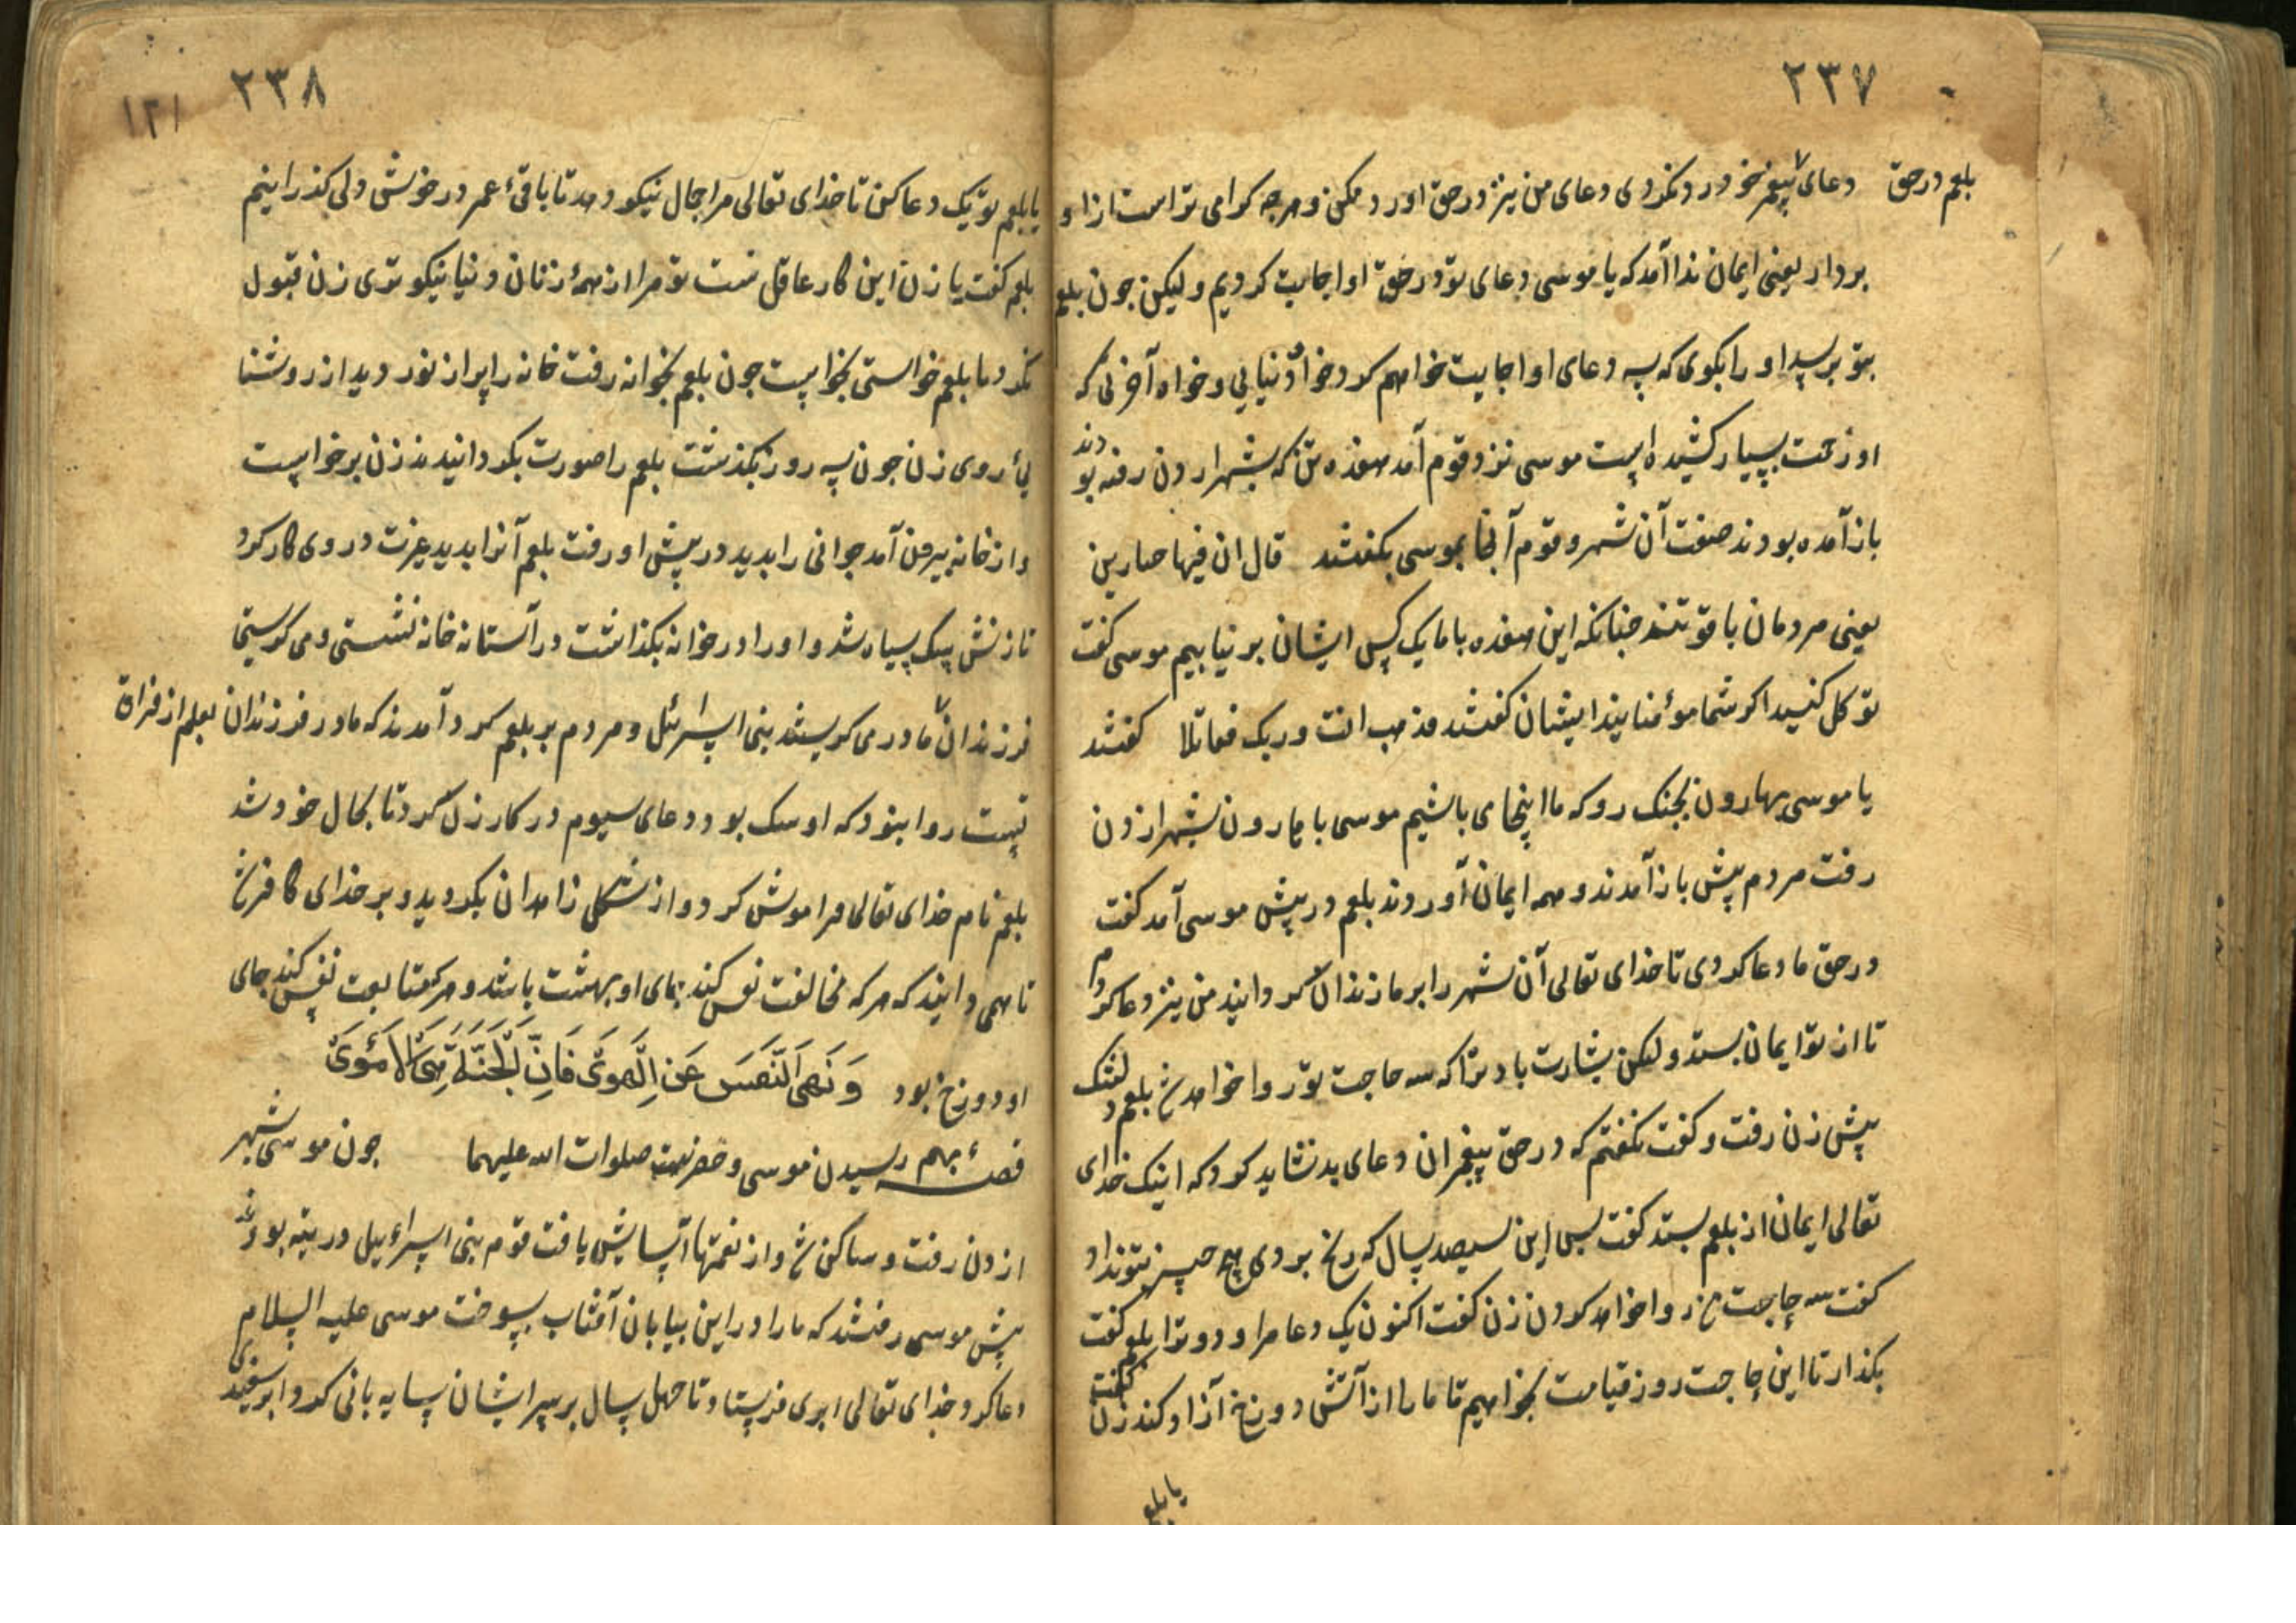 ۲۳۷
بلعم در حق
دعای پیغمبر خود رد نکردی دعای من نیز در حق او رد مکن و هرچه کرامی تر است ازاو
بردار یعنی ایمان ندا آمد که یا موسی دعای تو در حق او اجابت کردیم و لیکن جون بلعم
بتو برسد او را بکوی که سه دعای او اجابت خواهم کرد خواه دنیایی و خواه آخرتی که
او زحمت بسیار کشیده است موسی نزد قوم آمد هفده تن که بشهر اردن رفته بودند
باز آمده بودند صفت آن شهر و قوم آنجا بموسی بکفتند قال ان فیها جبارین
یعنی مردمان با قوتند جنانکه این هفده با ما یک کس ایشان بر نیاییم موسی کفت
توکل کنید اکر شما مؤمنایند ایشان کفتند فذهب انت وربک فقاتلا کفتند
یا موسی بهارون بجنک رو که ما اینجا می باشیم موسی با هارون بشهر اردن
رفت مردم پیش باز آمدند و همه ایمان آوردند بلعم در پیش موسی آمد کفت
در حق ما دعا کردی تا خدای تعالی آن شهر را بر ما زندان کردانید من نیز دعا کردم
تا از تو ایمان بستد و لیکن بشارت باد ترا که سه حاجت تو روا خواهد شد بلعم دلتنک
پیش زن رفت و کفت نکفتم که در حق پیغمبران دعای بد نشاید کرد که اینک خدای
تعالی ایمان از بلعم بستد کفت پس این سیصد سال که رنج بردی هیچ چیز بتو نداد
کفت سه حاجت من روا خواهد کردن زن کفت اکنون یک دعا مرا و دو ترا بلعم کفت
بکذار تا این حاجت روز قیامت بخواهیم تا ما را از آتش دوزخ آزاد کند زن کفت
یا بلعم
۲۳۸
۱۲۱
یا بلعم تو یک دعا کن تا خدای تعالی مرا جمال نیکو دهد تا باقیٔ عمر در خوش دلی بکذرانیم
بلعم کفت یا زن این کار عاقل نیست تو مرا از همهٔ زنان دنیا نیکوتری زن قبول
نکرد ما بلعم خواستی بخواست جون بلعم بخوانه رفت خانه را پر از نور دید از روشنا
یٔ روی زن جون سه روز بکذشت بلعم را صورت بکردانیدند زن برخواست
و از خانه بیرون آمد جوانی را بدید در پیش او رفت بلعم آنرا بدید غیرت در وی کار کرد
تا زنش سک سیاه شد و او را در خوانه بکذاشت در آستانه خانه نشستی و می کریستی
فرزندان مادر می کریستند بنی اسرائل و مردم بر بلعم کرد آمدند که مادر فرزندان بلعم از فراق
نیست روا نبود که او سک بود دعای سیوم در کار زن کرد تا بحال خود شد
بلعم نام خدای تعالی فراموش کرد و از شکل زاهدان بکردید و بر خدای کافر شد
تا همی دانید که هر که مخالفت نفس کند جای او بهشت باشد و هر که متابعت نفس کند جای
او دوزخ بود وَنَهَی النَّفسَ عَنِ الهَوَی فَاِنَّ الجَنَّةَ هِیَ المَأوَی
قصهٔ بهم رسیدن موسی و خضر نبی صلوات الله علیهما جون موسی بشهر
اردن رفت و ساکن شد و از نعمتها آسایش یافت قوم بنی اسراءیل در تیه بودند
پیش موسی رفتند که ما را در این بیابان آفتاب بسوخت موسی علیه السلام
دعا کرد خدای تعالی ابری فرستاد تا چهل سال بر سر ایشان سایه بانی کرد و ابر سفیدی